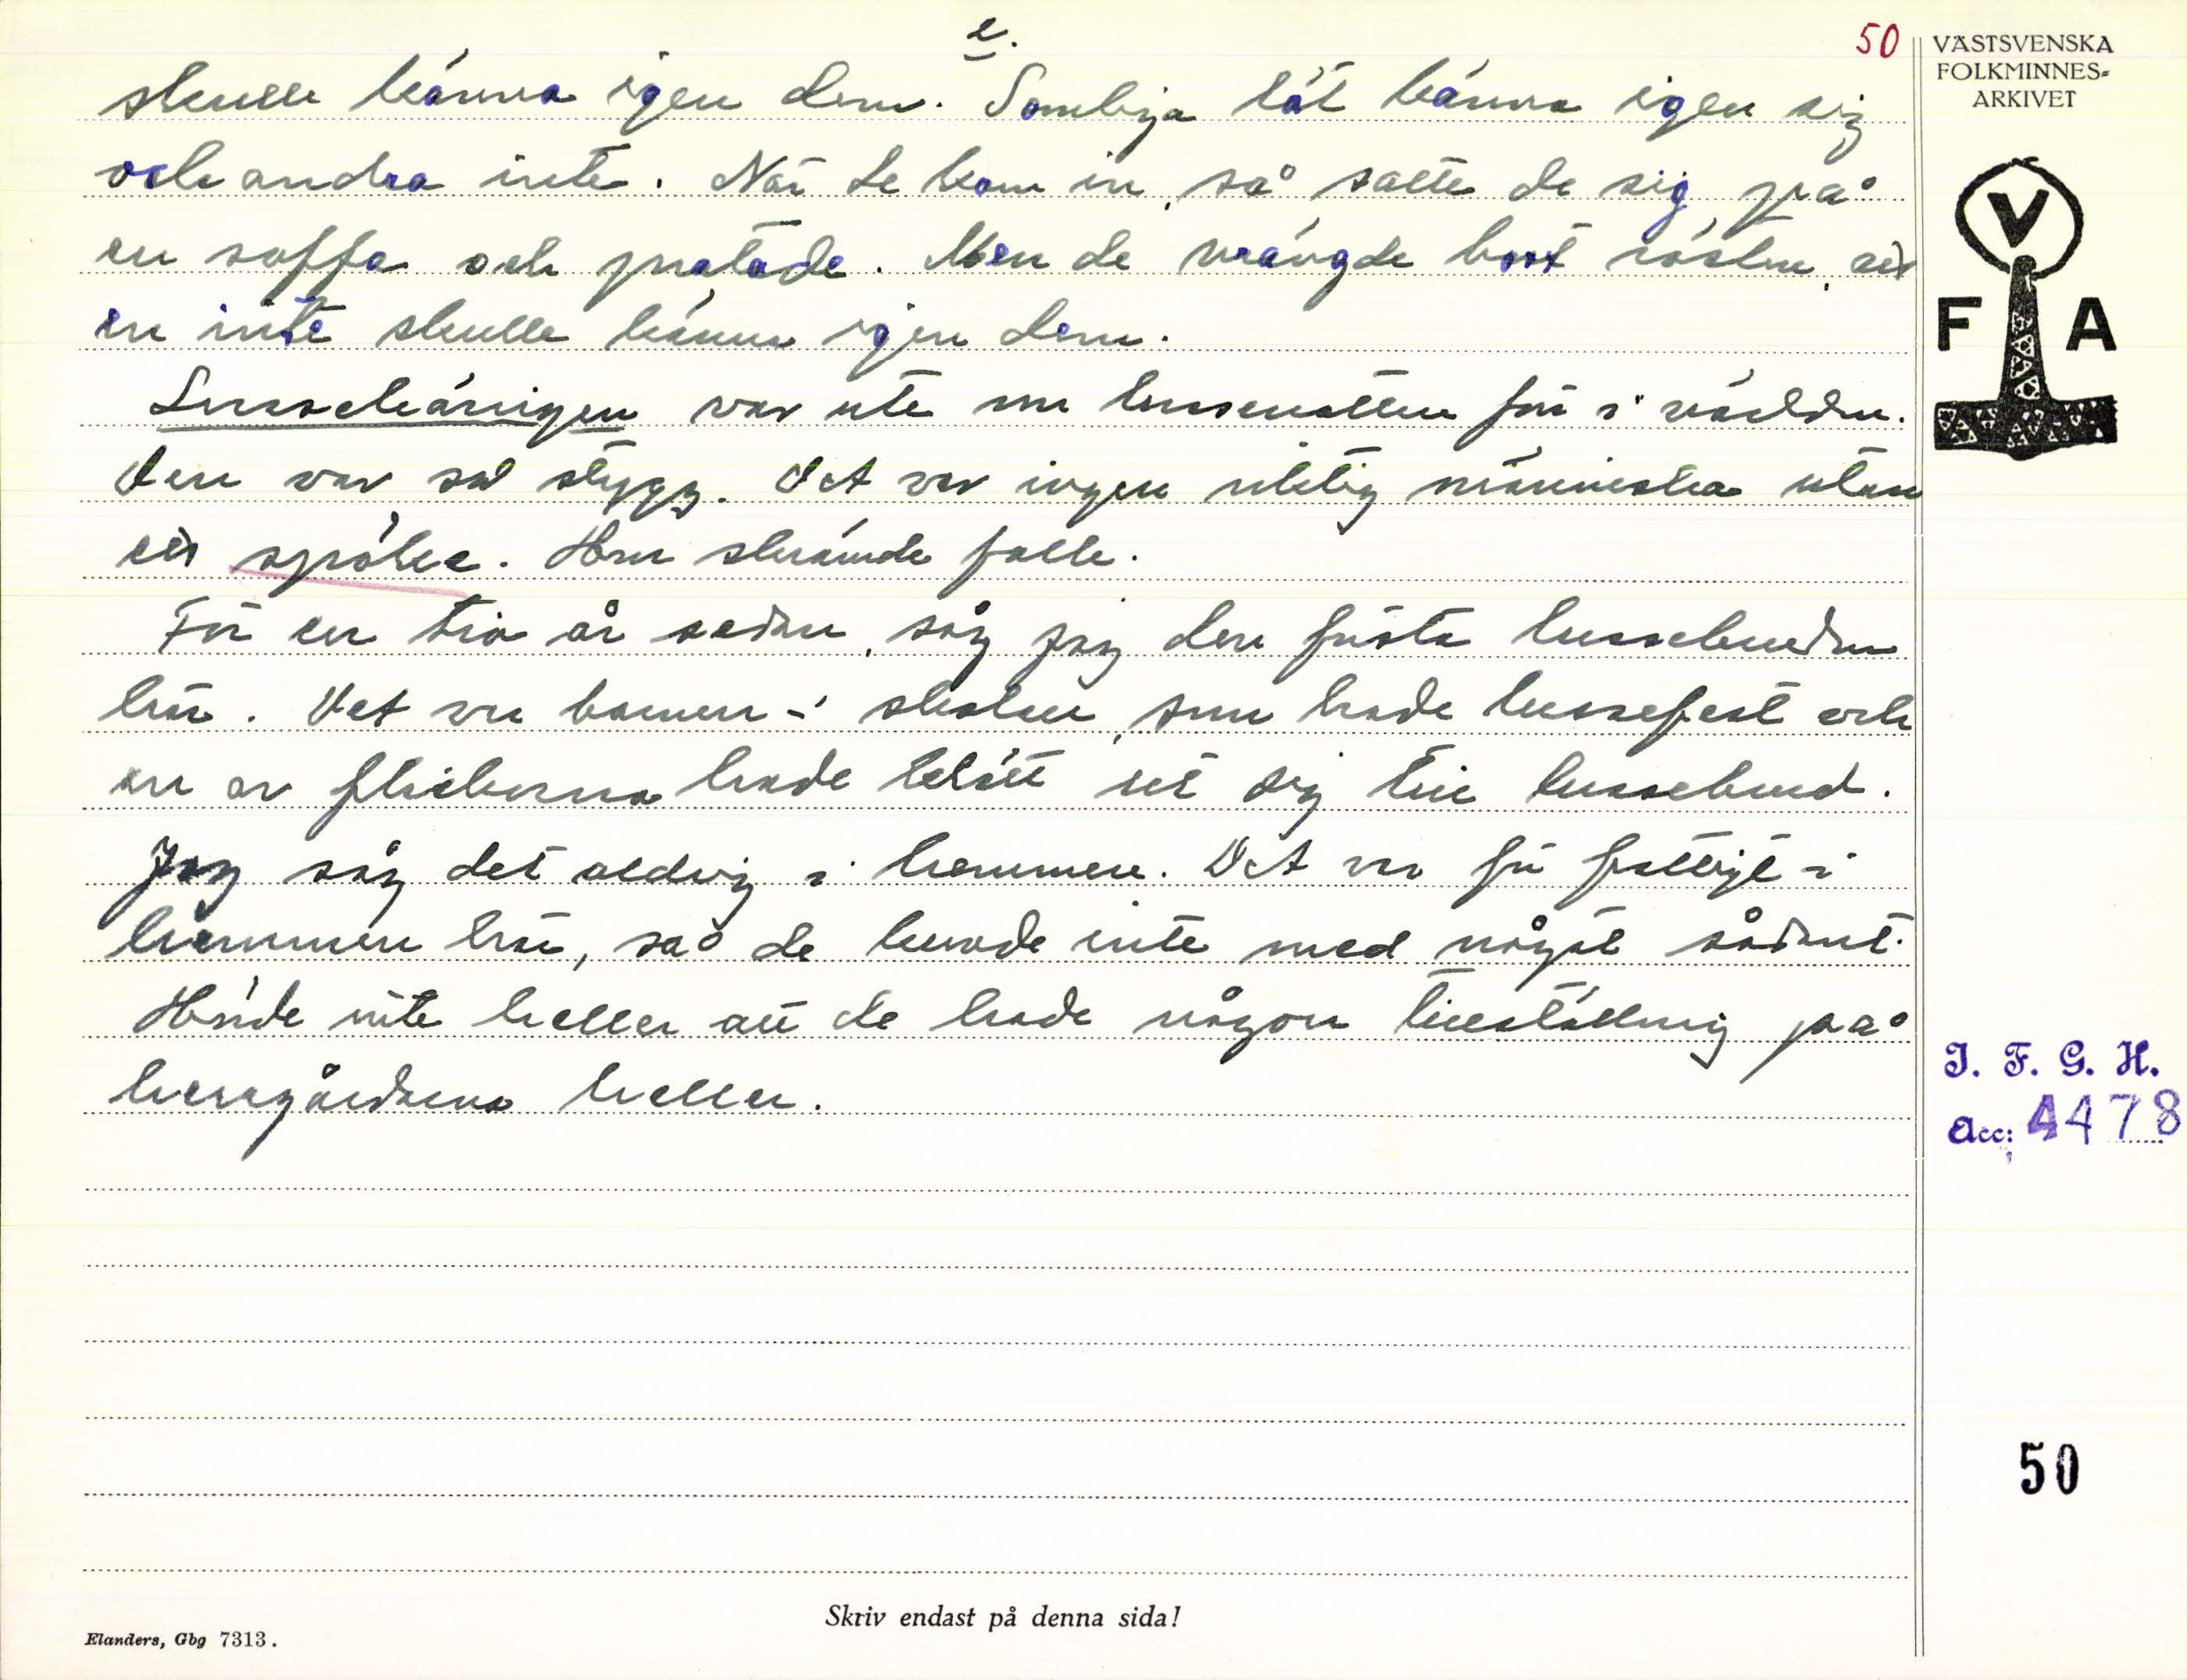 2.
50
VÄSTSVENSKA
FOLKMINNES-
ARKIVET
skulle känna igen dem. Somliga lät känna igen sig
och andra inte. När de kom in, så satte de sig på
en soffa och pratade. Men de vrängde bort rösten, att
en inte skulle känna igen dem.
V
F A
Lussekäringen var ute om lussenatten för i världen.
Den var så stygg. Det var ingen riktig människa utan
ett spöke. Hon skrämde folk.
För en tio år sedan, såg jag den första lussebruden
här. Det var barnen i skolan, som hade lussefest och
en av flickorna hade klätt ut sig till lussebrud.
Jag såg det aldrig i hemmen. Det var för fattigt i
hemmen här, så de hade inte med något sådant.
Hörde inte heller att de hade någon tillställning på
herrgårdarna heller.
I. F. G. H.
Acc: 4478
50
Skriv endast på denna sida!
Elanders, Gbg 7313.